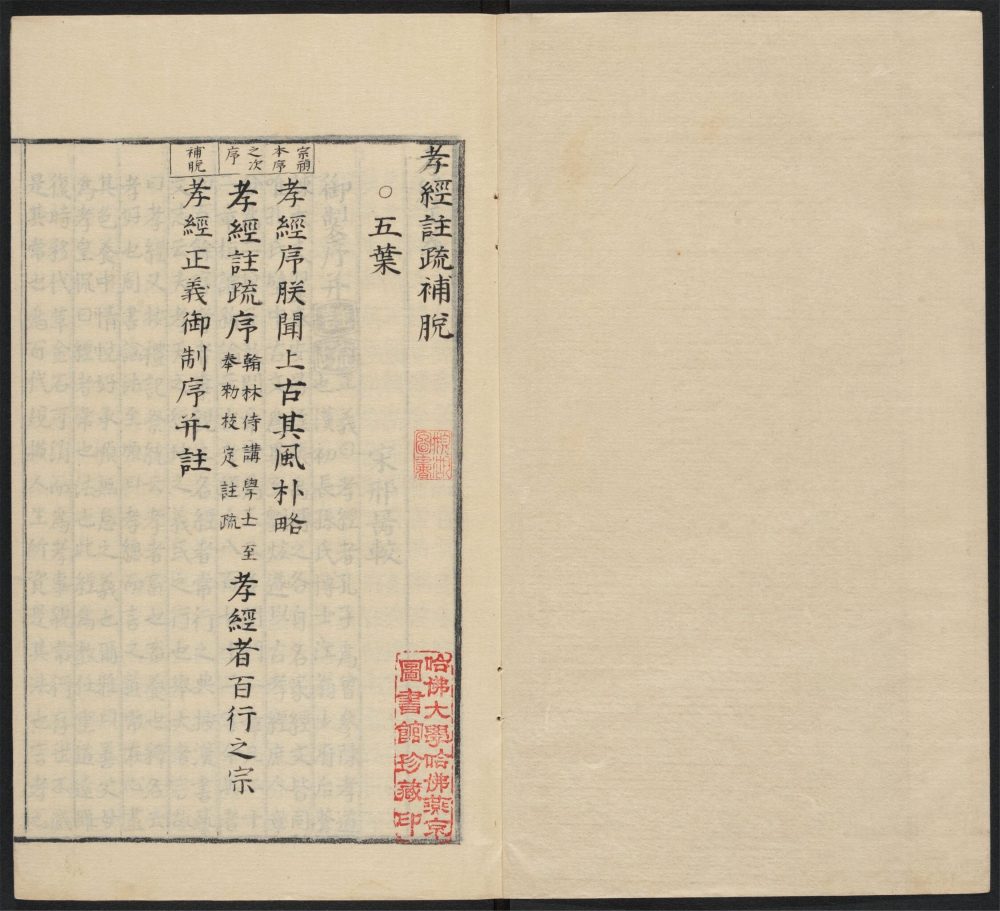 孝經註疏補脫
○五葉
宗祠
本序
之次
序
孝經序朕聞上古其風朴略
孝經註疏序翰林侍講學士至
奉勑校定註疏
孝經者百行之宗
補脫
孝經正義御制序并註
哈佛大學哈佛燕京
圖書館珍藏印